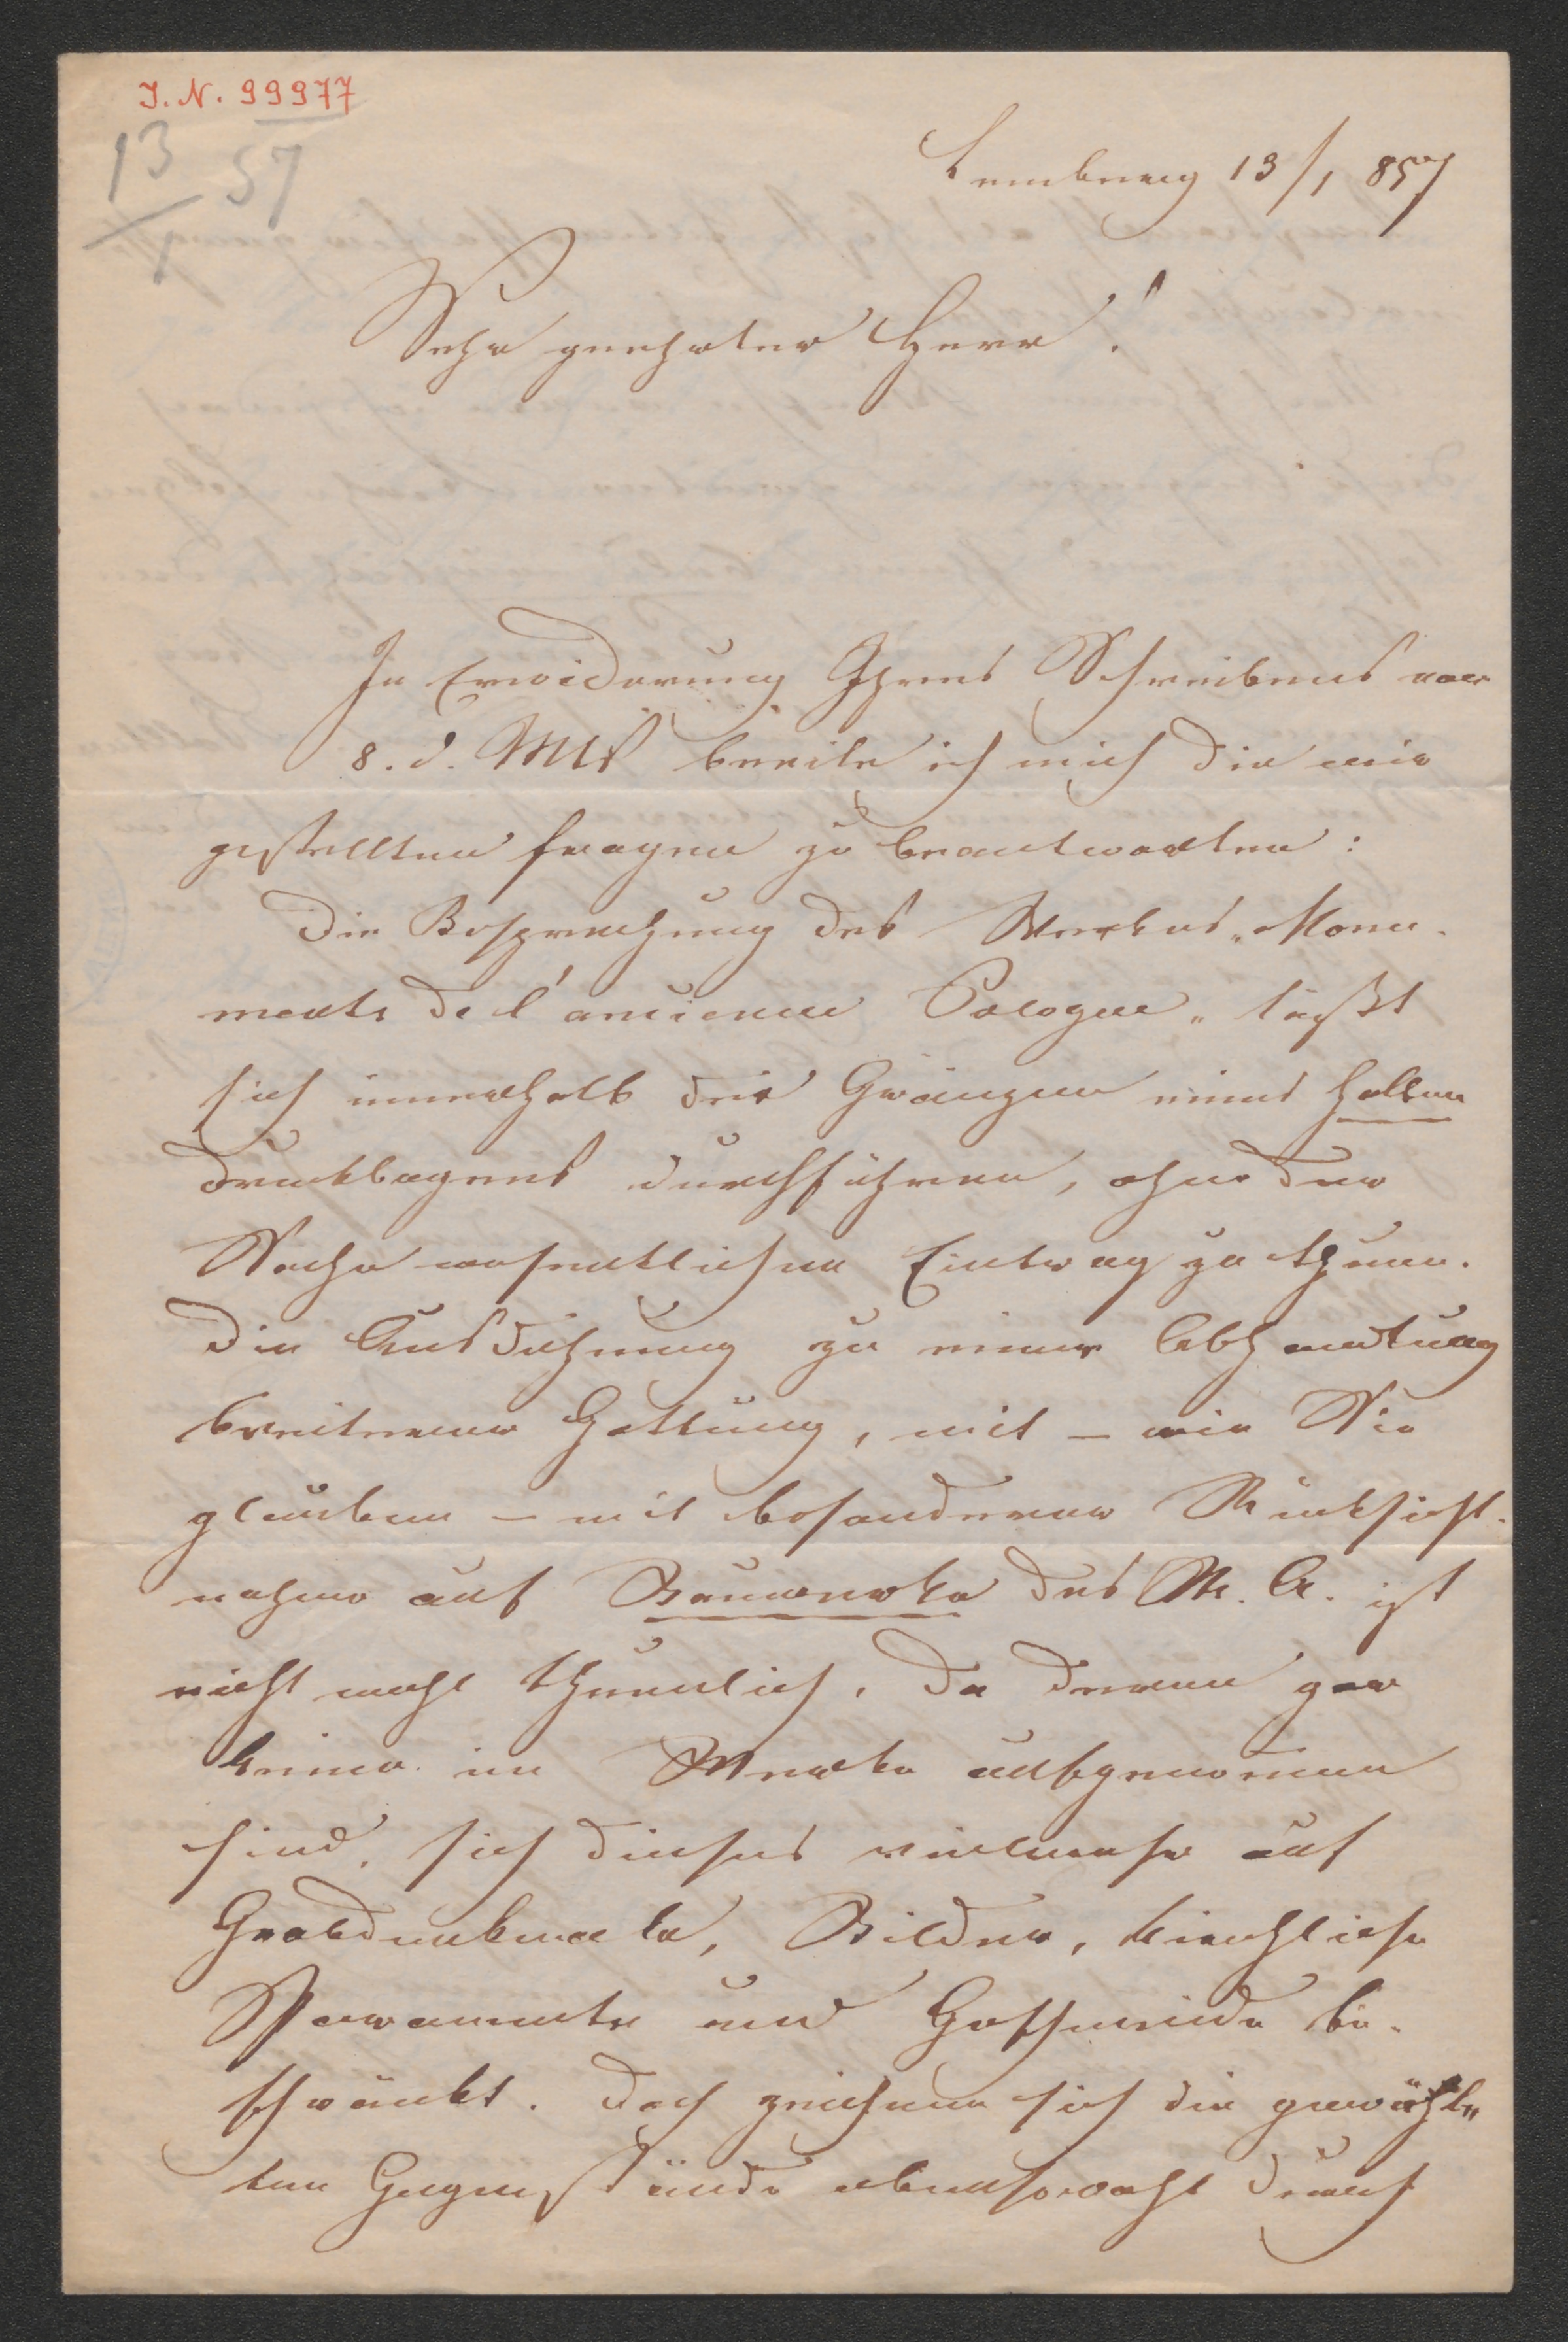 I. N. 99977
13/1 57
Lemberg 13/1 857
Sehr geehrter Herr!
In Erwiderung Ihres Schreibens vom
8. d. Mts beeile ich mich die mir
gestellten Fragen zu beantworten:
Die Besprechung des Werkes „Monu-
ments de l'ancienne Pologne" läßt
sich innerhalb der Gränzen eines halben
Druckbogens durchführen, ohne der
Sache wesentlichen Eintrag zu thuen.
Die Ausdehnung zu einer Abhandlung
breiterer Gattung, mit – wie Sie
glauben – mit besonderer Rücksicht-
nahme auf Bauwerke des M. A. ist
nicht wohl thuenlich, da deren gar
keine im Werke aufgenommen
sind, sich dieses vielmehr auf
Grabdenkmale, Bilder, kirchliche
Paramente und Geschmeide be-
schränkt. Doch zeichnen sich die gewähl-
ten Gegenstände ebensowohl durch